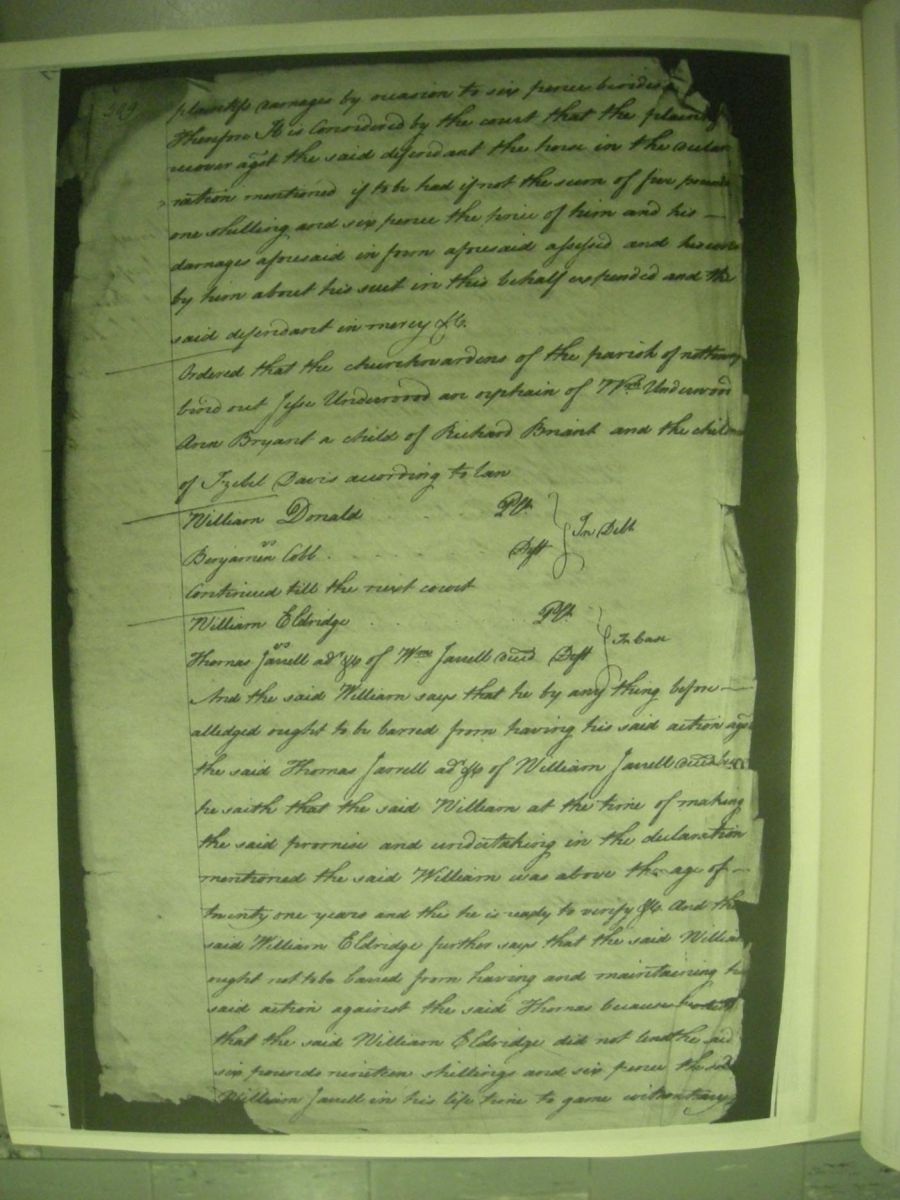 349
plaintifs damages by occasion to six pence besides
Therefore It is Considered by the court that the plaintif
recover agst the said defendant the horse in the declar
ration mentioned if to be had if not the sum of five pounds
one shilling and six pence the price of him and his —
damages aforesaid in form aforesaid assessed and his costs
by him about his suit in this behalf expended and the
said defendant in mercy &c.
Ordered that the churchwardens of the parish of nottoway
bind out Jesse Underwood an orphain of Wm Underwood
Ann Bryant a child of Richard Briant and the children
of Izebel Davis according to law
William Donald Plt.
vs In Debt
Benjamin Cobb Deft
Continued till the next court
William Eldridge Plt.
vs In Case
Thomas Jarrell adr &c of Wm Jarrell decd Deft
And the said William says that he by any thing before —
alledged ought to be barred from having his said action agst
the said Thomas Jarrell adr &c of William Jarrell decd
he saith that the said William at the time of making
the said promise and undertaking in the declaration
mentioned the said William was above the age of —
twenty one years and this he is ready to verify &c And the
said William Eldridge further says that the said William
ought not to be barred from having and maintaining his
said action against the said Thomas because
that the said William Eldridge did not lend the said
six pounds nineteen shillings and six pence the said
William Jarrell in his life time to game